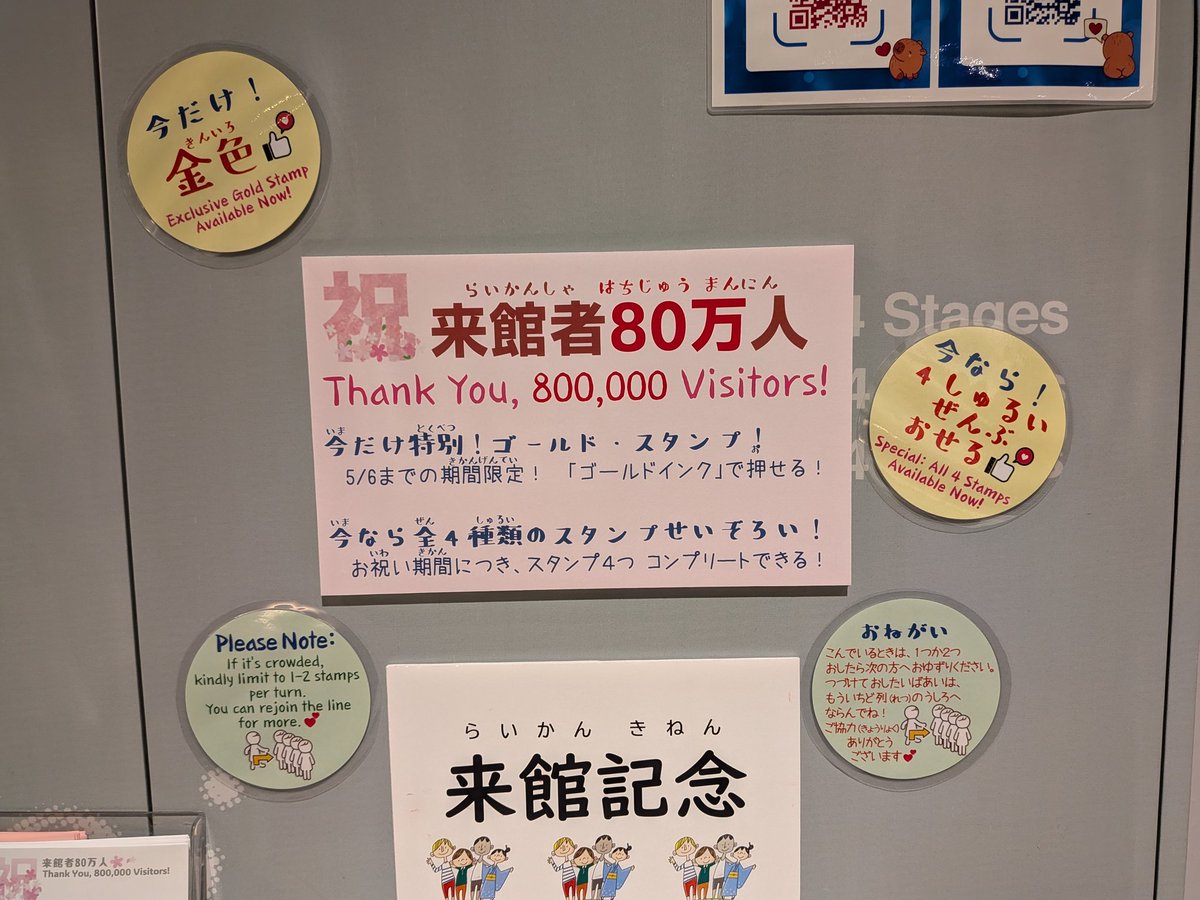 今だけ！
きんいろ
金色
Exclusive Gold Stamp
Available Now!
祝
らいかんしゃ はちじゅう まんにん
来館者80万人
Thank You, 800,000 Visitors!
いま とくべつ
今だけ特別！ゴールド・スタンプ！
きかんげんてい お
5/6までの期間限定！「ゴールドインク」で押せる！
いま ぜん しゅるい
今なら全4種類のスタンプせいぞろい！
いわ きかん
お祝い期間につき、スタンプ4つ コンプリートできる！
4 Stages
4
4
今なら！
4しゅるい
ぜんぶ
おせる
Special: All 4 Stamps
Available Now!
Please Note:
If it's crowded,
kindly limit to 1-2 stamps
per turn.
You can rejoin the line
for more.
おねがい
こんでいるときは、1つか2つ
おしたら次の方へおゆずりください。
つづけておしたいばあいは、
もういちど列(れつ)のうしろへ
ならんでね！
ご協力(きょうりょく)
ありがとう
ございます
らいかん きねん
来館記念
祝
来館者80万人
Thank You, 800,000 Visitors!